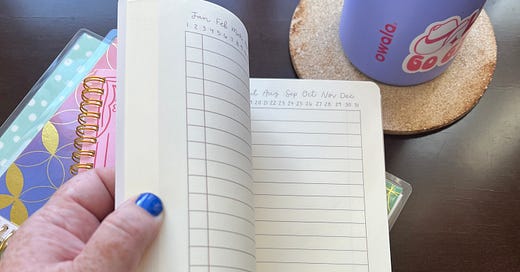 Jan Feb Mar
1 2 3 4 5 6 7 8
Aug Sep Oct Nov Dec
20 21 22 23 24 25 26 27 28 29 30 31
owala
GO